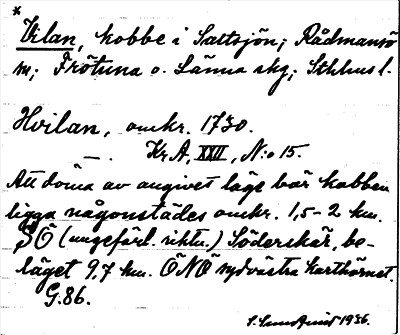 *
Vilan, kobbe i Saltsjön; Rådmansö
sn; Frötuna o. Länna skg; Sthlms l.
Hvilan, omkr. 1730.
— . Kr. A, XXII, N:o 15.
Att döma av angivet läge bör kobben
ligga någonstädes omkr. 1,5-2 km.
SÖ (ungefärl. riktn.) Söderskär, be-
läget 9,7 km. ÖNÖ sydvästra karthörnet.
G.86.
S. Sundquist 1936.